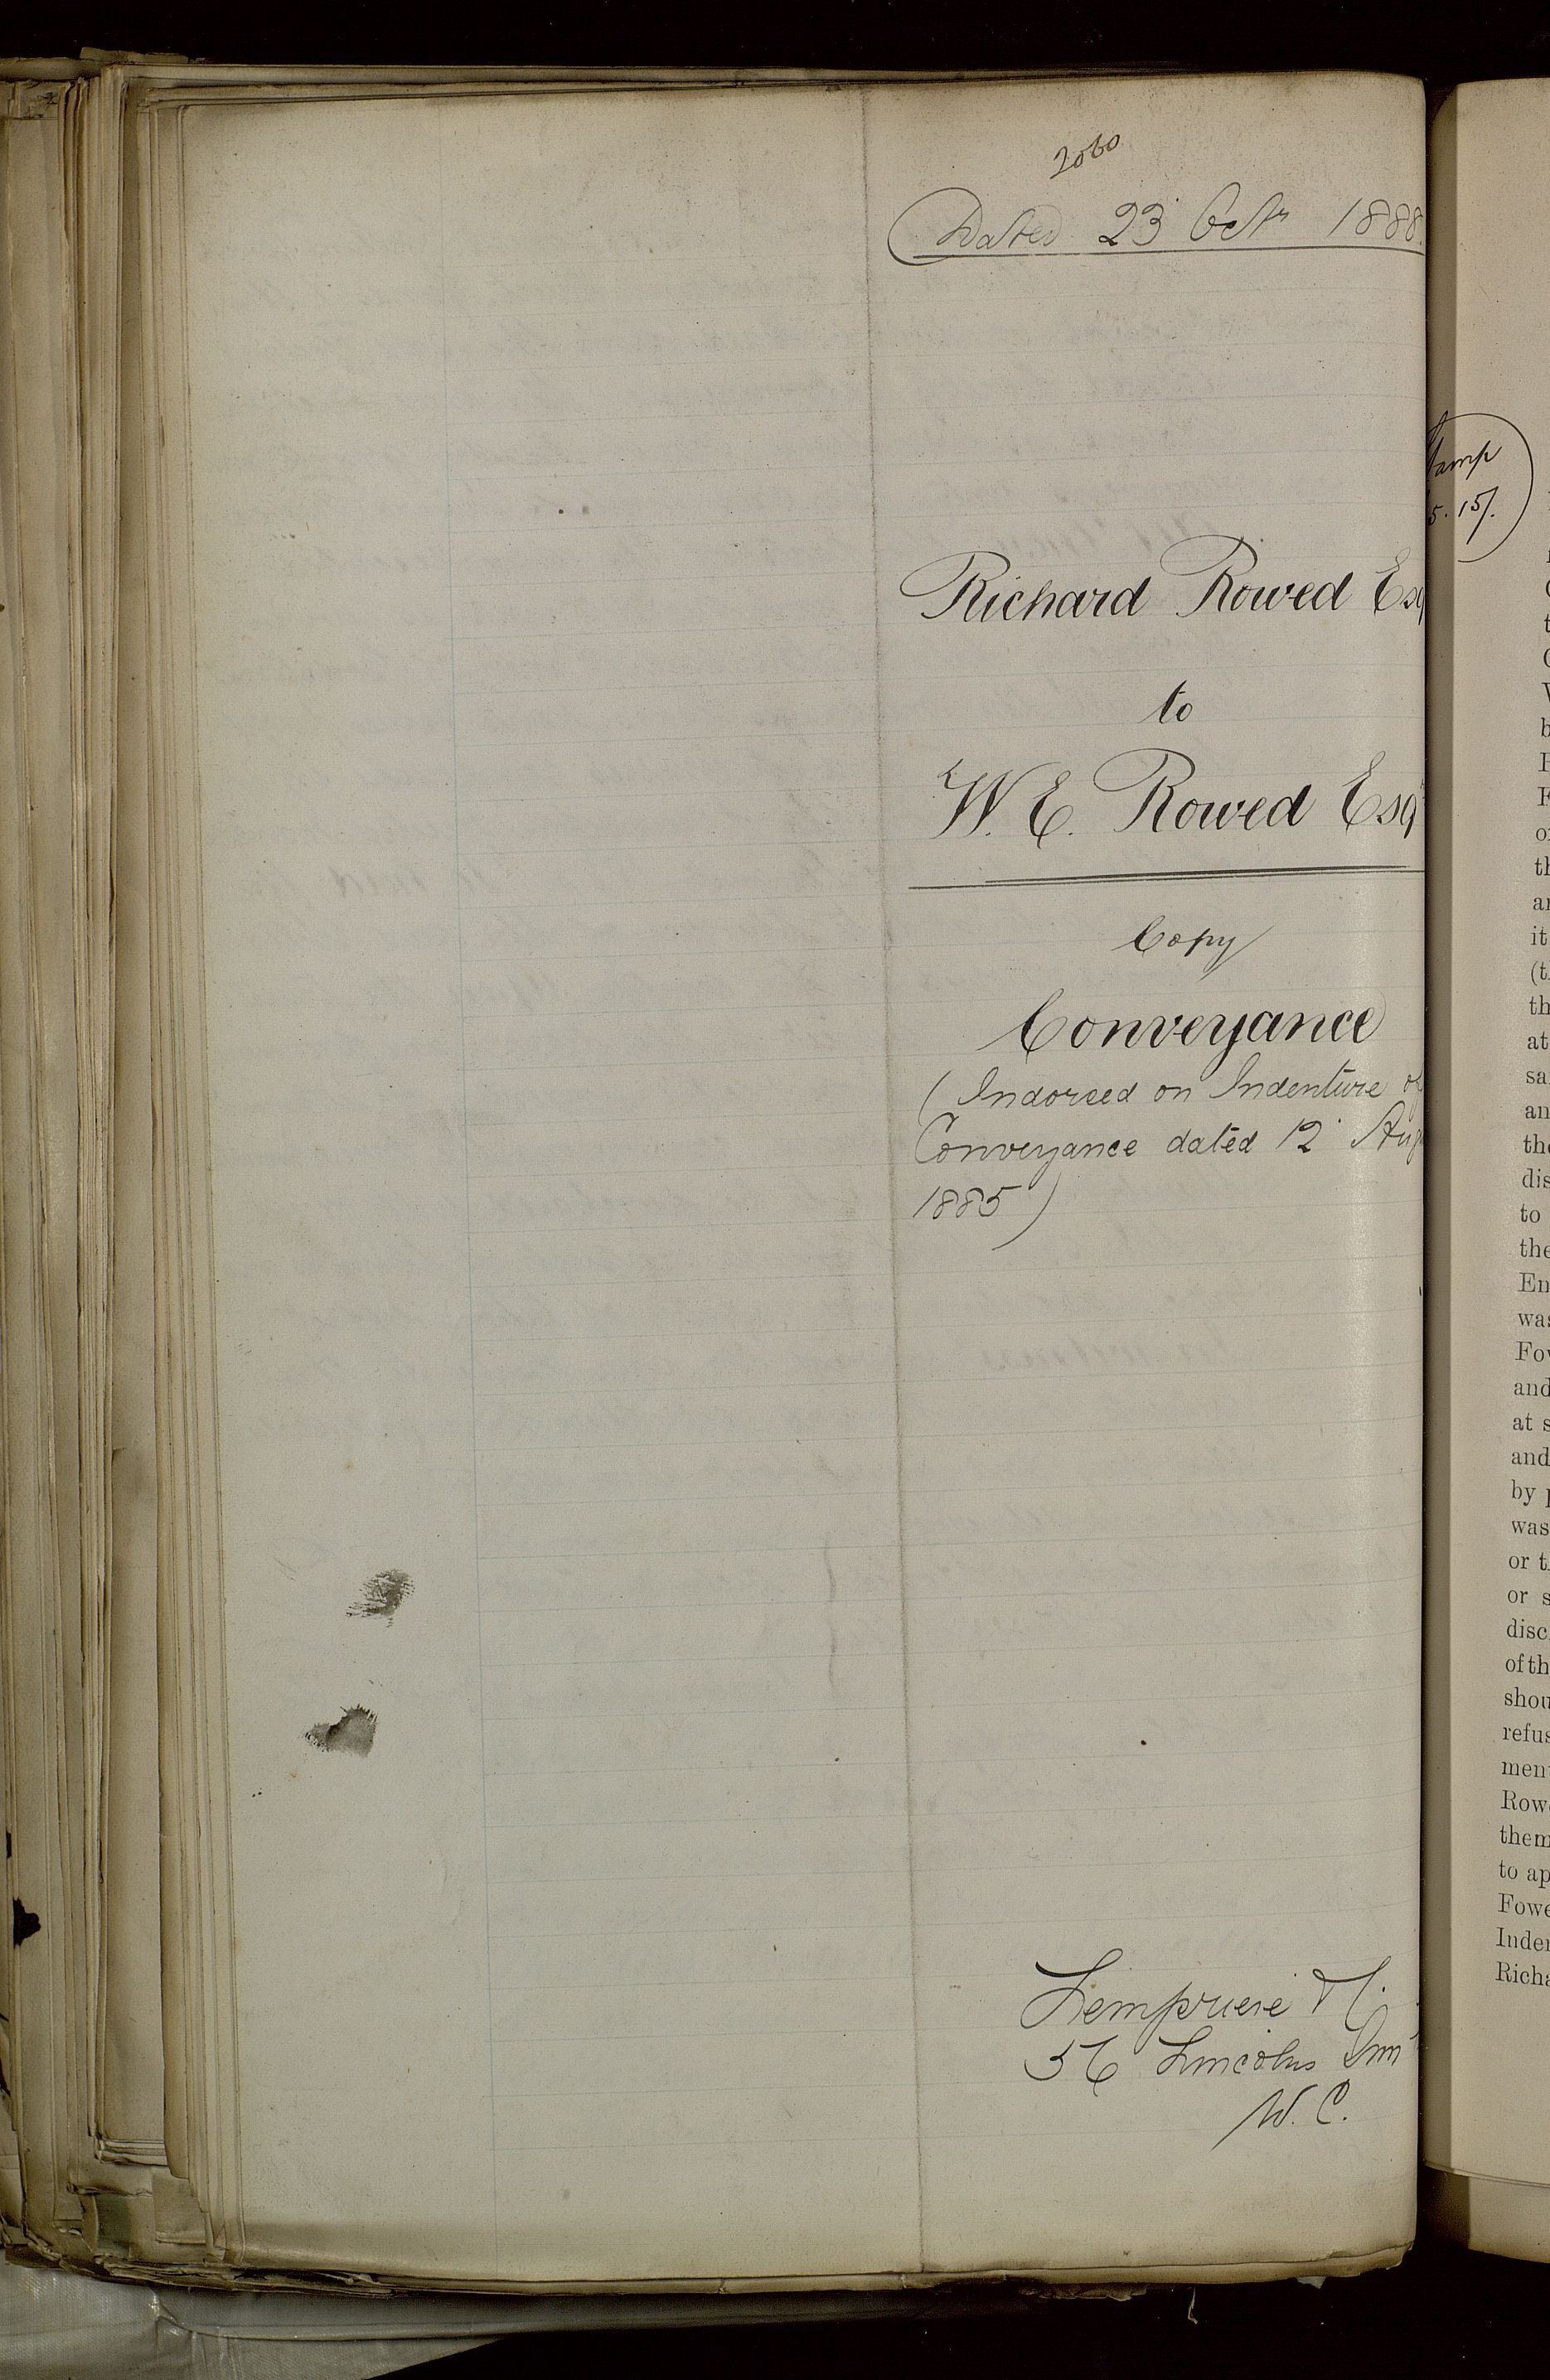 2060
Dated 23 Octr 1888.
Richard Rowed Esq
to
W. E. Rowed Esqr
Copy
Conveyance
( Indorsed on Indenture of
Conveyance dated 12 Aug
1885 )
Lempriere
56 Lincolns Inn
W. C.
tamp
5. 15/.
it
(t
th
at
sa
an
the
dis
to
the
En
was
Fow
and
at s
and
by p
was
or t
or s
disc
of th
shou
refus
ment
Rowe
them
to ap
Fowe
Inden
Richa